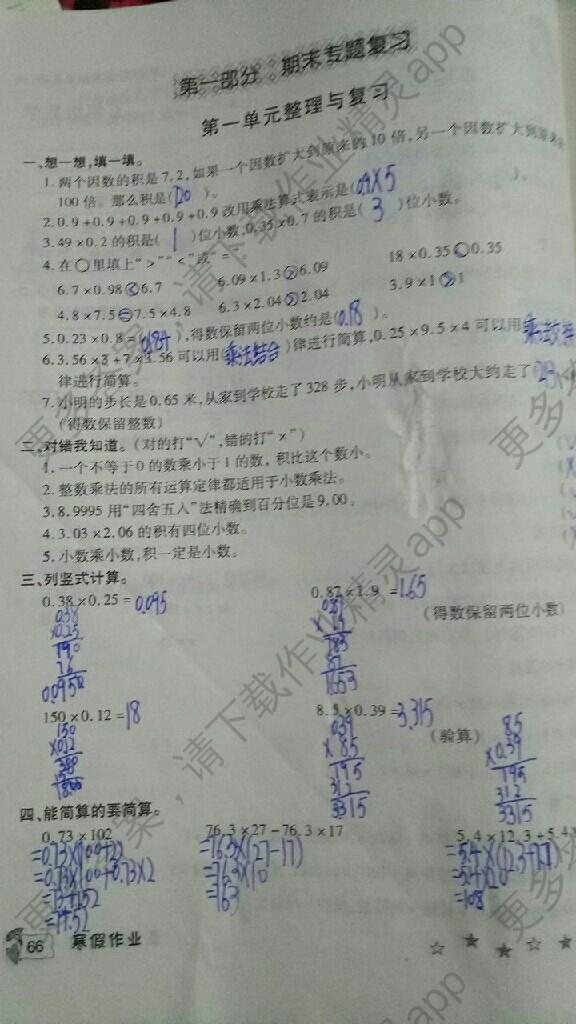 第一部分 期末专题复习
第一单元整理与复习
一、想一想,填一填。
1.两个因数的积是7.2,如果一个因数扩大到原来的10倍,另一个因数扩大到原来
100倍。那么积是( )。
2.0.9+0.9+0.9+0.9+0.9改用乘法算式表示是(0.9×5 )。
3.49×0.2的积是( 1 )位小数,0.35×0.7的积是( 3 )位小数。
4.在○里填上“>”“<”或“=”
6.7×0.98<6.7 6.09×1.3>6.09 18×0.35 0.35
4.8×7.5=7.5×4.8 6.3×2.04>2.04 3.9×1 1
5.0.23×0.8=(0.184),得数保留两位小数约是(0.18)。
6.3.56×3+7×3.56可以用(乘法结合)律进行简算,0.25×9.5×4可以用
律进行简算。
7.小明的步长是0.65米,从家到学校走了328步,小明从家到学校大约走了
(得数保留整数)
二、对错我知道。(对的打“√”,错的打“×”)
1.一个不等于0的数乘小于1的数,积比这个数小。
2.整数乘法的所有运算定律都适用于小数乘法。
3.8.9995用“四舍五入”法精确到百分位是9.00。
4.3.03×2.06的积有四位小数。
5.小数乘小数,积一定是小数。
三、列竖式计算。
0.38×0.25=0.095 0.87×1.9 =1.65
(得数保留两位小数)
0.38 0.87
×0.25
190
76
0.0950 1653
150×0.12=18 8.5×0.39=3.315
(验算)
150 0.39 8.5
×0.12 ×8.5 ×0.39
195
312
3315
四、能简算的要简算。
0.73×102 76.3×27-76.3×17 5.4×12.3+5.4
=0.73×(100+2) =76.3×(27-17) =5.4×(12.3+7.7)
=0.73×100+0.73×2 =76.3×10 =5.4×20
=763 =108
66 寒假作业
更多答案,请下载作业精灵app